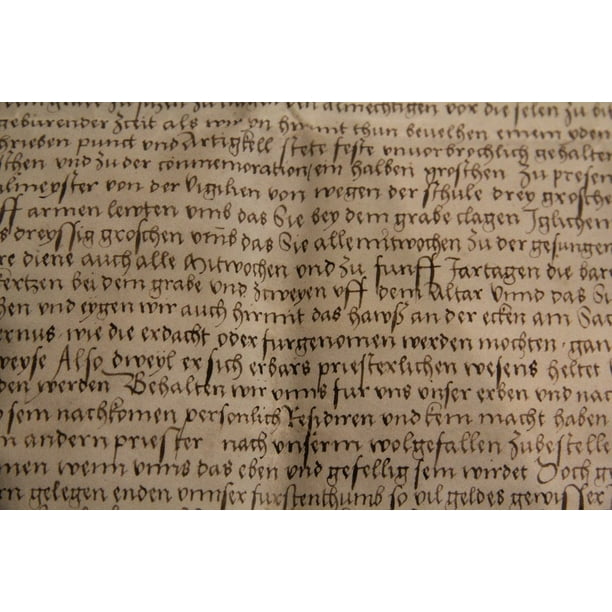 almechtigen vor die selen zu di
geburender Zceit als wir yn hirmit thun bevelhen einem yden
hrieben punct und Artigkell stete feste unvorbrochlich gehalten
schen und zu der commemoration ein halben groschen zu presen
almeyster von der vigilien von wegen der schule drey grosche
ff armen lewten umb das Sie bey dem grabe clagen Iglichen
s dreyssig groschen unnd das Sie alle mitwochen zu der gesungen
re diene auch alle Mitwochen und zu funff Jartagen die bare
kertzen bei dem grabe und zcweyen uff dem Altar Unnd das Si
hen und eygen wir auch hirmit das hawß an der ecken am Sac
ernus wie die erdacht oder furgenomen werden mochten gan
weyse Also dweyl er sich erbars priesterlichen wesens heltet
den werden Behalten wir unns fur uns unser erben und nac
o sein nachkomen personlich Residiren und kein macht haben
n andern priester nach unserm wolgefallen zubestelle
men wenn unns das eben und gefellig sein wirdet Doch ge
rn gelegen enden unnser furstenthumb so vil geldes gewisser